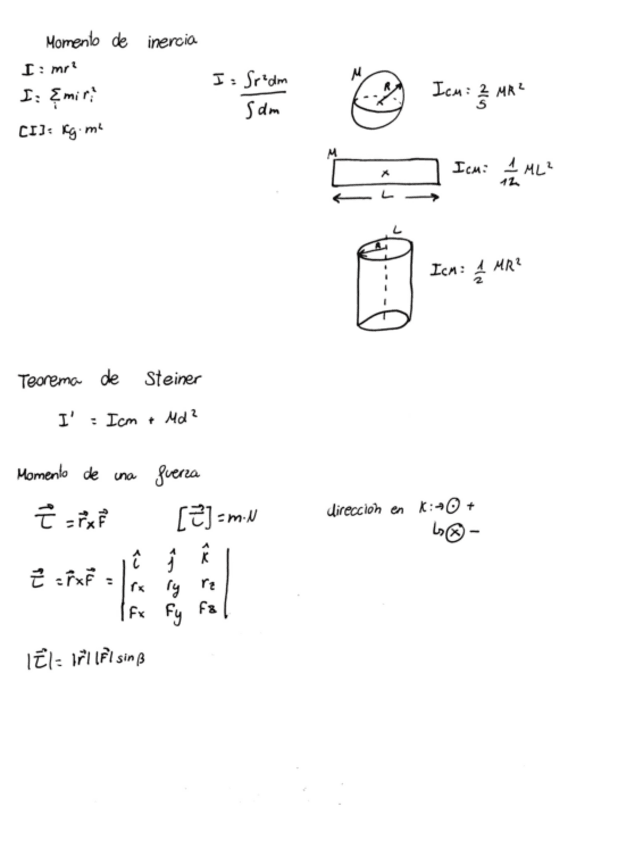 Momento de inercia
I = mr²
I = Σ mi ri²
i
[I] = Kg·m²
I = ∫r²dm
∫dm
M
R
Icm = 2/5 MR²
M
x
L
Icm = 1/12 ML²
L
R
Icm = 1/2 MR²
Teorema de Steiner
I' = Icm + Md²
Momento de una fuerza
τ⃗ = r⃗ x F⃗
[τ⃗] = m·N
dirección en K: → ⊙ +
↳ ⊗ −
τ⃗ = r⃗ x F⃗ = | î ĵ k̂
rx ry rz
Fx Fy Fz |
|τ⃗| = |r⃗| |F⃗| sin β